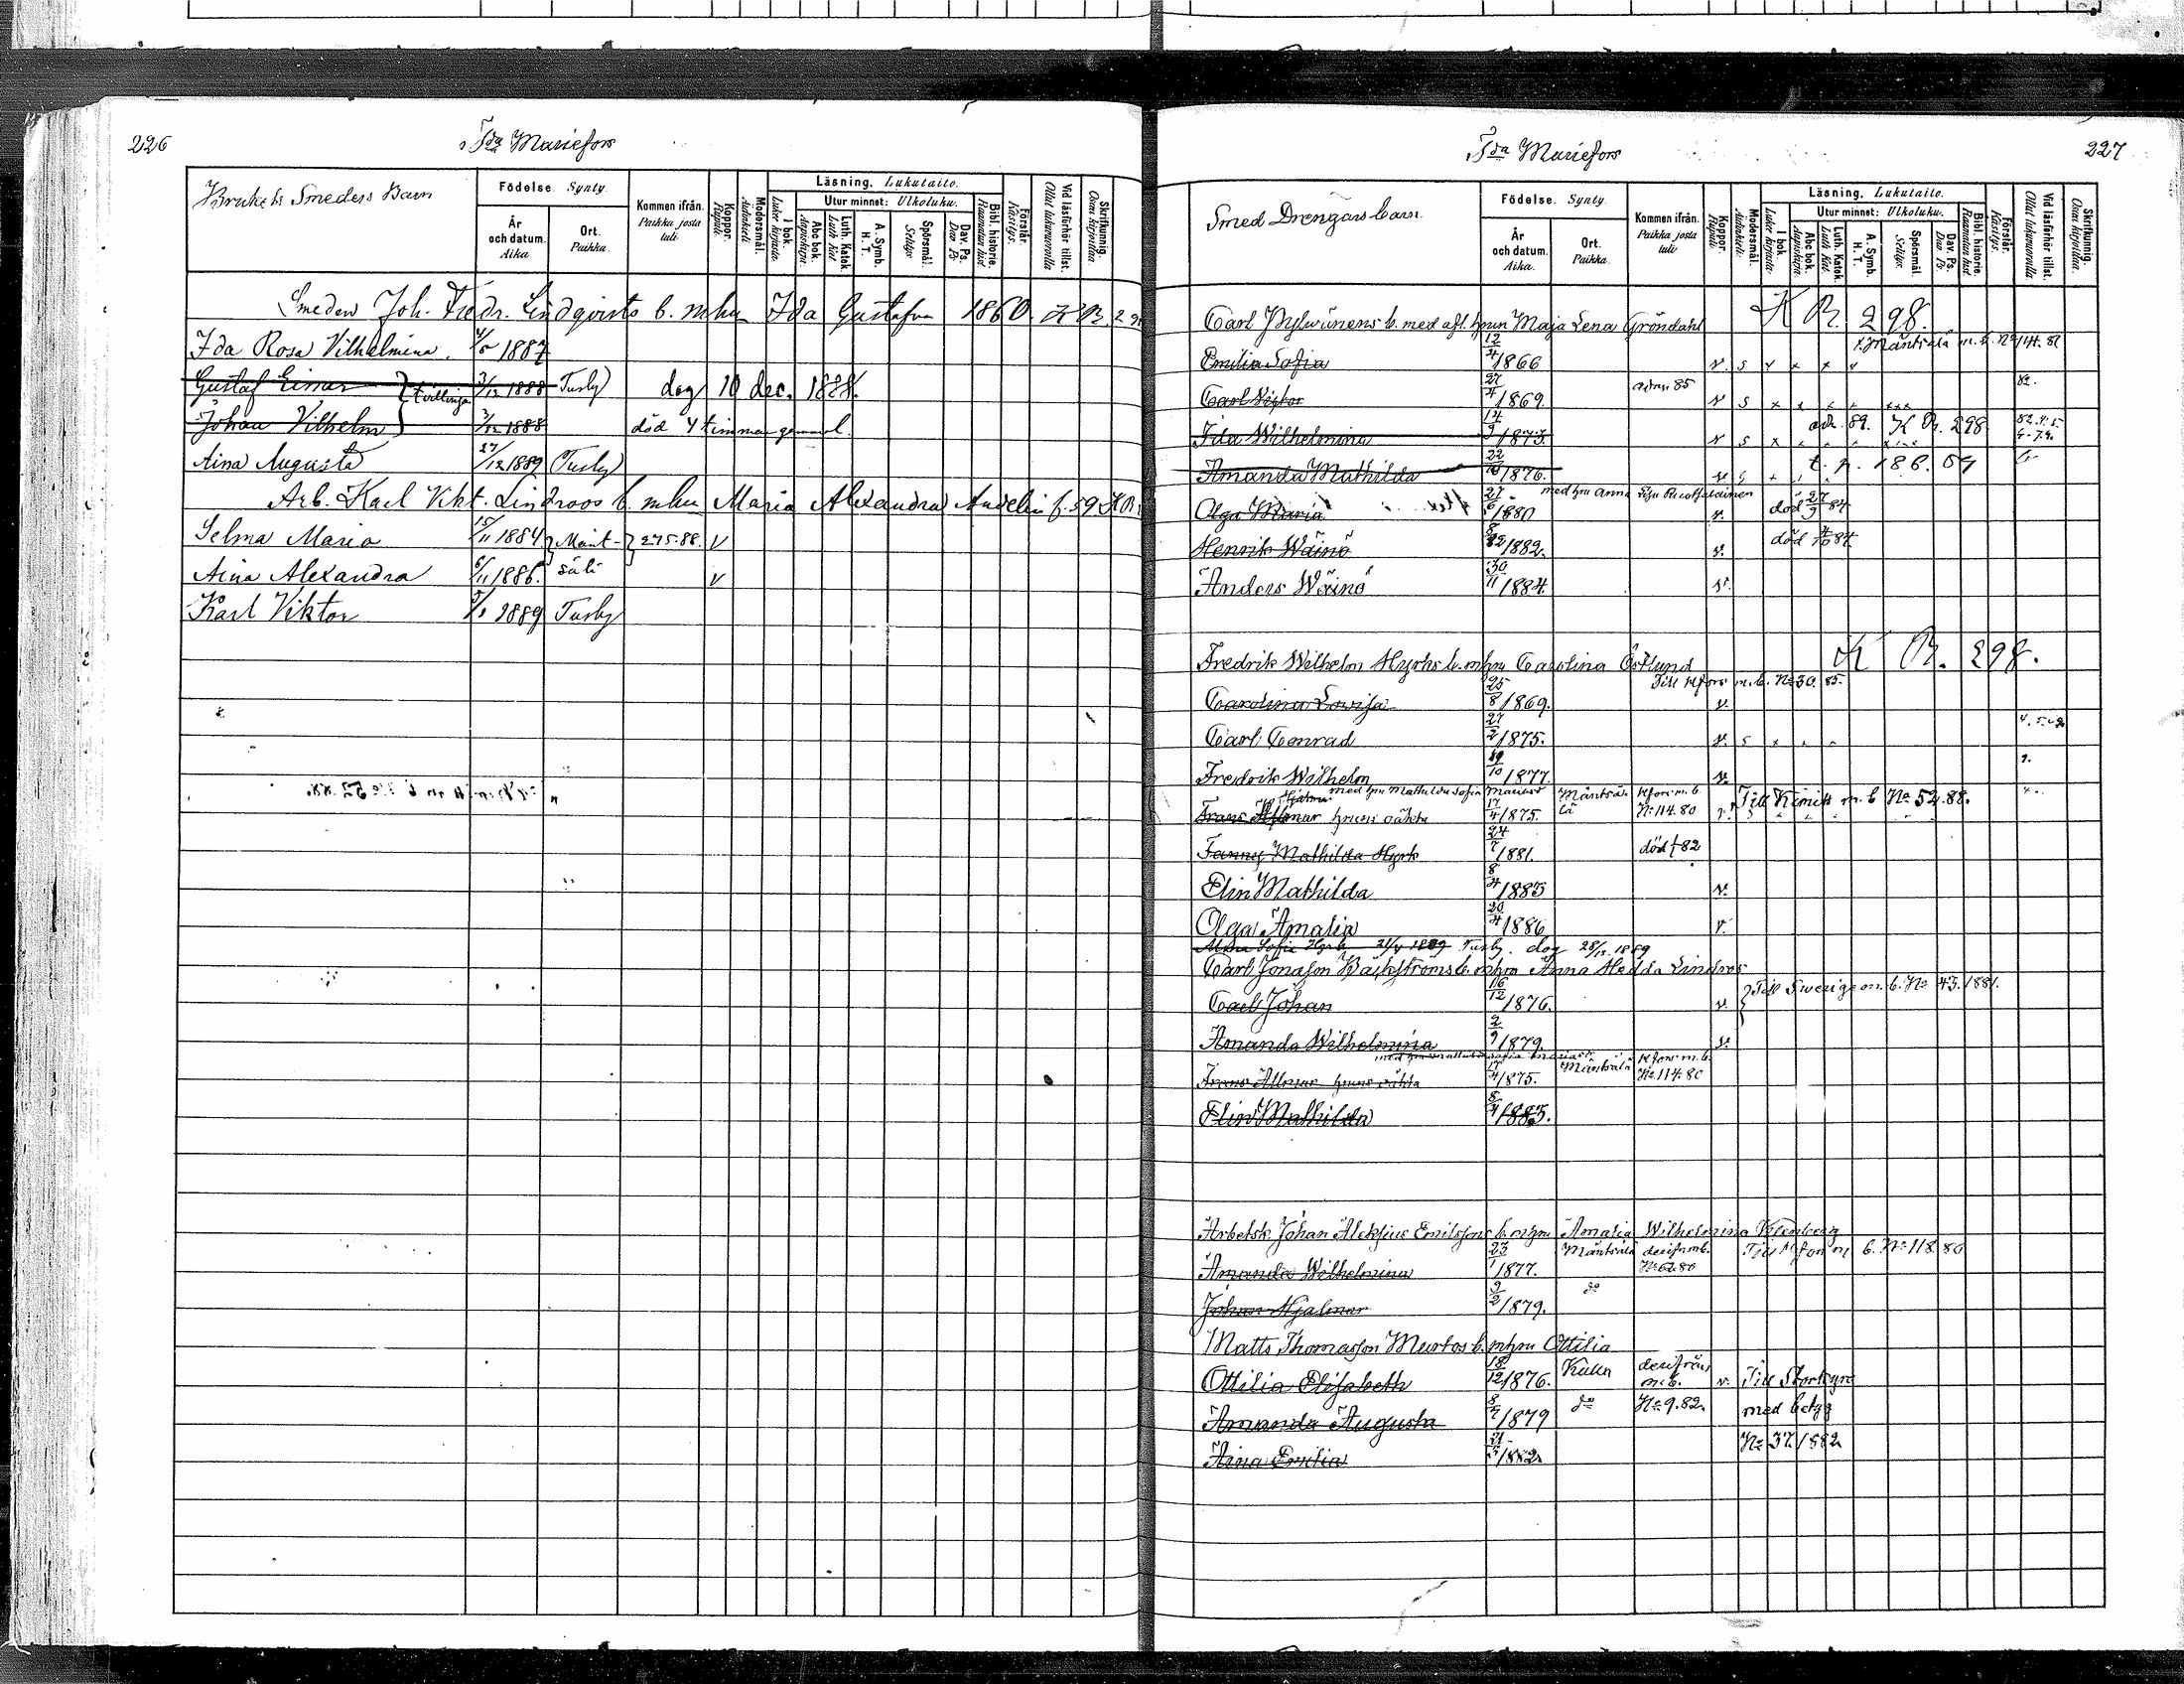 226
Tda Mariefors
Brukets Smeders Barn
Födelse. Synty.
År och datum. Aika
Ort. Paikka.
Kommen ifrån. Paikka josta tuli.
Koppor. Rupuli.
Modersmål. Äidinkieli
Läsning. Lukutaito.
I bok. Lukee kirjasta.
Utur minnet: Ulkoluku.
Abc bok. Aapiskirja.
Luth. Katek. Luth Kat.
A. Symb. H. T.
Spörsmål. Selitys
Dav. Ps. Dav Ps.
Bibl. historie. Raamatun hist.
Förstår. Käsitys.
Vid läsförhör tillst. Ollut lukuvuorolla
Skrifkunnig. Osaa kirjoittaa.
Smeden Joh. Fredr. Lindqvists b. mhu Ida Gustafva 1860. K B. 29
Ida Rosa Vilhelmina. 4/5 1887
Gustaf Einar } tvillingar 3/12 1888 Tusby dog 10 dec. 1888.
Johan Vilhelm } 3/12 1888 död 4 timmar gammal.
Aina Augusta 27/12 1889 Tusby
Arb. Karl Vikt. Lindroos b. mhu Maria Alexandra Andelin f. 59 K B.
Selma Maria 15/11 1884 } Mänt- } 275. 88. V
Aina Alexandra 6/11 1886. sälä V
Karl Viktor 1889 Tusby
227
Tda Mariefors
Smed Drengars barn.
Födelse. Synty.
År och datum. Aika.
Ort. Paikka.
Kommen ifrån. Paikka josta tuli
Koppor. Rupuli.
Modersmål. Äidinkieli.
Läsning. Lukutaito.
I bok. Lukee kirjasta.
Utur minnet: Ulkoluku.
Abc bok. Aapiskirja.
Luth. Katek. Luth Kat.
A. Symb. H. T.
Spörsmål. Selitys.
Dav. Ps. Dav Ps.
Bibl. historie. Raamatun hist.
Förstår. Käsitys.
Vid läsförhör tillst. Ollut lukuvuorolla
Skrifkunnig. Osaa kirjoittaa.
Carl Pylwänens b. med afl. hun Maja Lena Gröndahl K B. 298.
Mäntsälä m. b. No 114. 82
Emilia Sofia 12/4 1866 v. s
Carl Viktor 27/4 1869. 85 v s 82.
Ida Wilhelmina 14/9 1873. v s 89. K B. 298
Amanda Mathilda 22 1876. v. s t. p. 186. 89
Olga Maria 27/6 1880 med hu Anna v. död 27/3 84
Henrik Wäinö 8 1882. v. död 4/10 84
Anders Wäinö 30/11 1884. v.
Fredrik Wilhelm Hyrks b. mhu Carolina Östlund K B. 298.
Till Hfors m. b. No 30. 85.
Carolina Lovisa 25/8 1869. v.
Carl Conrad 27/2 1875. v. s
Fredrik Wilhelm 19/10 1877. v.
med hu Mathilda Sofia
Hjalmar
Frans hruns oäkta 17/4 1875. Mäntsälä Hfors m. b No 114. 80 v. Till Kimito m. b No 52. 88.
Fanny Mathilda Hyrk 24/7 1881. död 82
Elin Mathilda 8/4 1883 v.
Olga Amalia 20/4 1886 v.
Sofia Hyrk 1889 Tusby. dog 28/12 1889
Carl Jonasson Backströms b. mhu Anna Hedda Lindros
Carl Johan 16/12 1876. v } Till Sverige m. b. No 43. 1881.
Amanda Wilhelmina 2/9 1879. v.
Frans hruns oäkta 17/4 1875. Mäntsälä Hfors m. b. No 114. 80
Elin Mathilda 8/4 1883.
Arbetsk. Johan Aleksius Emilssons b. mhu Amalia Wilhelmina
Amanda Wilhelmina 23/1 1877. Mäntsälä derifr m b. No 62. 80 Till Hfors m b. No 118. 80
Johan Hjalmar 9/2 1879. do
Matts Thomasson Murtos b. mhu Ottilia
Ottilia Elisabeth 18/12 1876. derifrån m. b. v. Till Storkyro
Amanda Augusta 8/7 1879 do No 9. 82. med betyg
Aina Emilia 1882 No 37. 1882